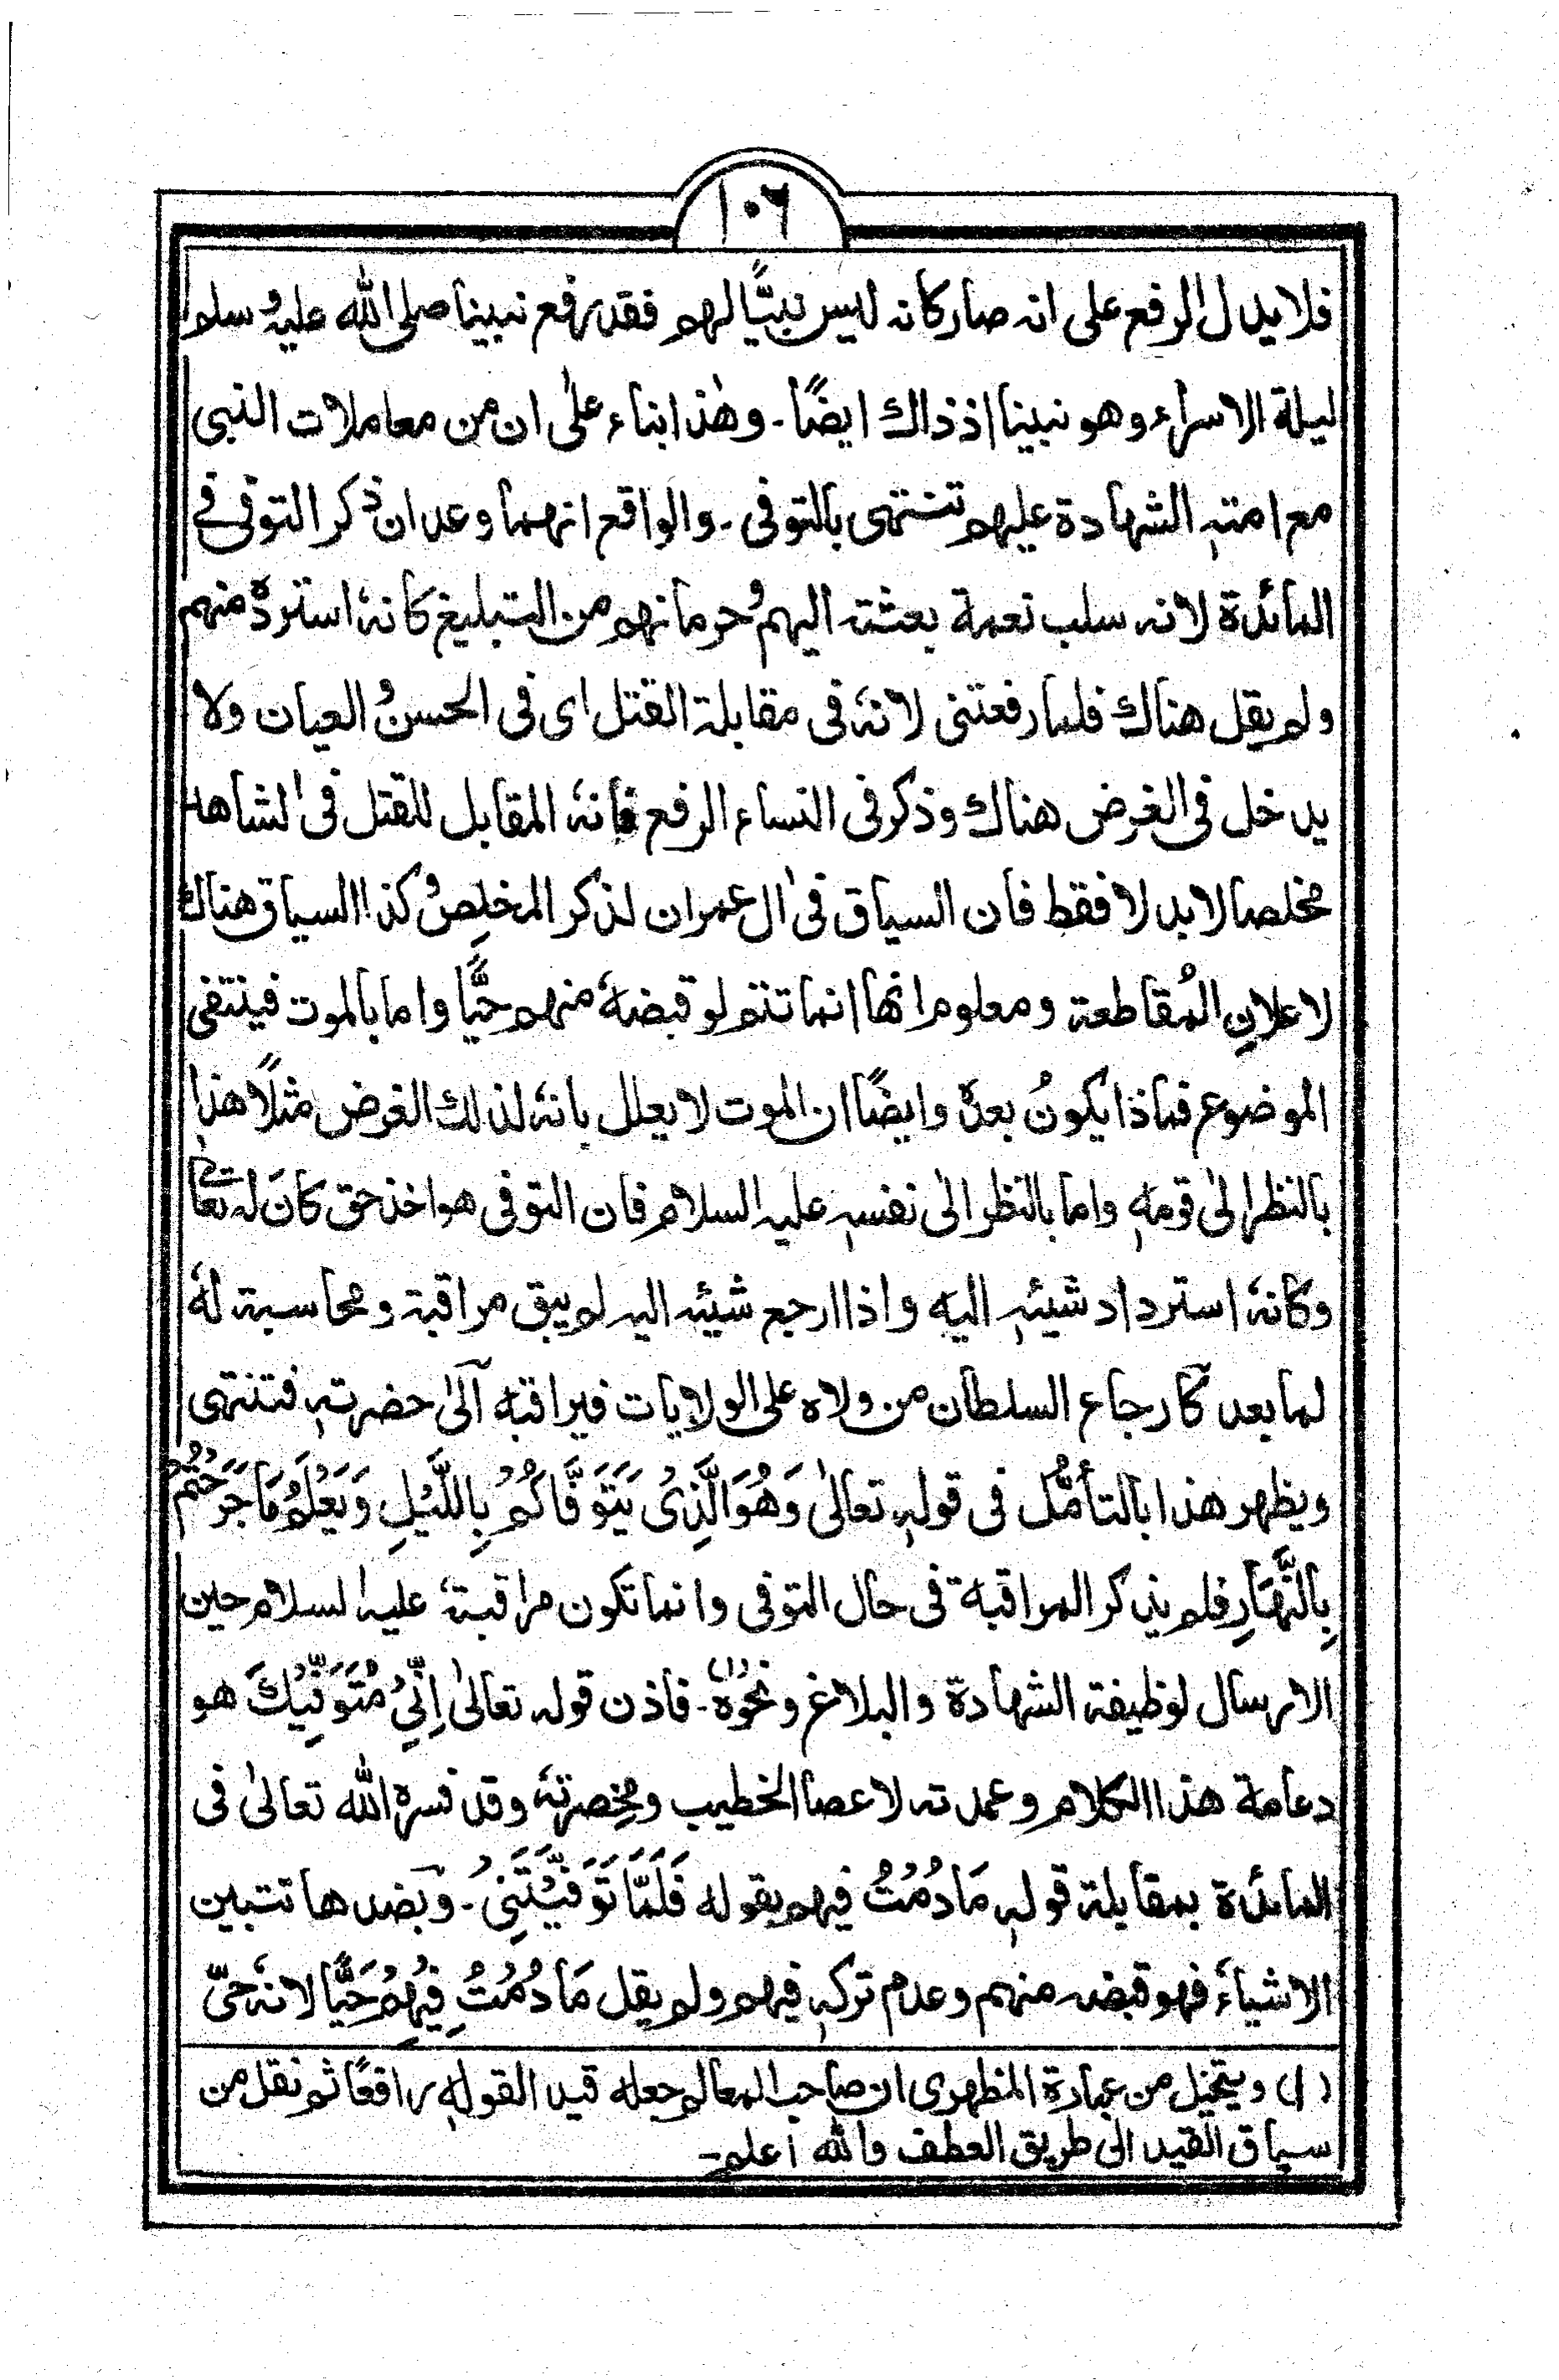 ١٠٦
فلا يدل الرفع على انه صار كانه ليس نبيًّا لهم فقد رفع نبينا صلى الله عليه وسلم
ليلة الاسراء وهو نبينا اذ ذاك ايضًا۔ وهٰذا بناء علىٰ ان من معاملات النبى
مع امتهٖ الشهادة عليهم تنتهى بالتوفى۔ والواقع انهما وعدان ذكر التوفى فے
المائدة لانه سلب نعمة بعثته اليهم وحرمانهم من التبليغ كانهٗ استردهٗ منهم
ولم يقل هناك فلما رفعتنى لانهٗ فى مقابلة القتل اى فى الحسن والعيان ولا
يدخل فى الغرض هناك وذكر فى النساء الرفع فانهٗ المقابل للقتل فى الشاهد
مخلصا لا بدلا فقط فان السياق فى اٰل عمران لذكر المخلصِ وكذا السياق هناك
لاعلانِ المُقاطعة ومعلوم انها انما تتم لو قبضهٗ منهم حيًّا واما بالموت فينتفى
الموضوع فماذا يكونُ بعدهٗ وايضًا ان الموت لا يعلل بانهٗ لذلك الغرض مثلًا هذا
بالنظر الىٰ قومهٖ واما بالنظر الىٰ نفسهٖ عليه السلام فان التوفى هو اخذ حق كانَ له تعالےٰ
وكانهٗ استرداد شيئهٖ اليه واذا ارجع شيئه اليه لم يبق مراقبة ومحاسبة لهٗ
لما بعد كارجاع السلطان من ولاه على الولايات فيراقبه الىٰ حضرتهٖ فتنتهى
ويظهر هذا بالتأمُّل فى قولهٖ تعالىٰ وَهُوَ الَّذِىْ يَتَوَفَّاكُمْ بِاللَّيْلِ وَيَعْلَمُ مَا جَرَحْتُمْ
بِالنَّهَارِ فلم يذكر المراقبة فى حال التوفى وانما تكون مراقبتهٗ عليه السلام حين
الارسال لوظيفة الشهادة والبلاغ ونحوهٖ(١)۔ فاذن قوله تعالىٰ اِنِّىْ مُتَوَفِّيْكَ هو
دعامة هذا الكلام وعمدته لا عصا الخطيب ومِخصرتهٗ وقد فسره الله تعالىٰ فى
المائدة بمقابلة قولهٖ مَا دُمْتُ فيهم بقوله فَلَمَّا تَوَفَّيْتَنِىْ۔ وبضدها تتبين
الاشياءٗ فهو قبضه منهم وعدم تركهٖ فيهم ولم يقل مَا دُمْتُ فِيْهِمْ حَيًّا لانهٗ حىّ
(١) ويتخيل من عبارة المظهرى ان صاحب المعالم جعله قيد القولهٖ رافعًا ثم نقل من
سياق القيد الى طريق العطف والله اعلم۔